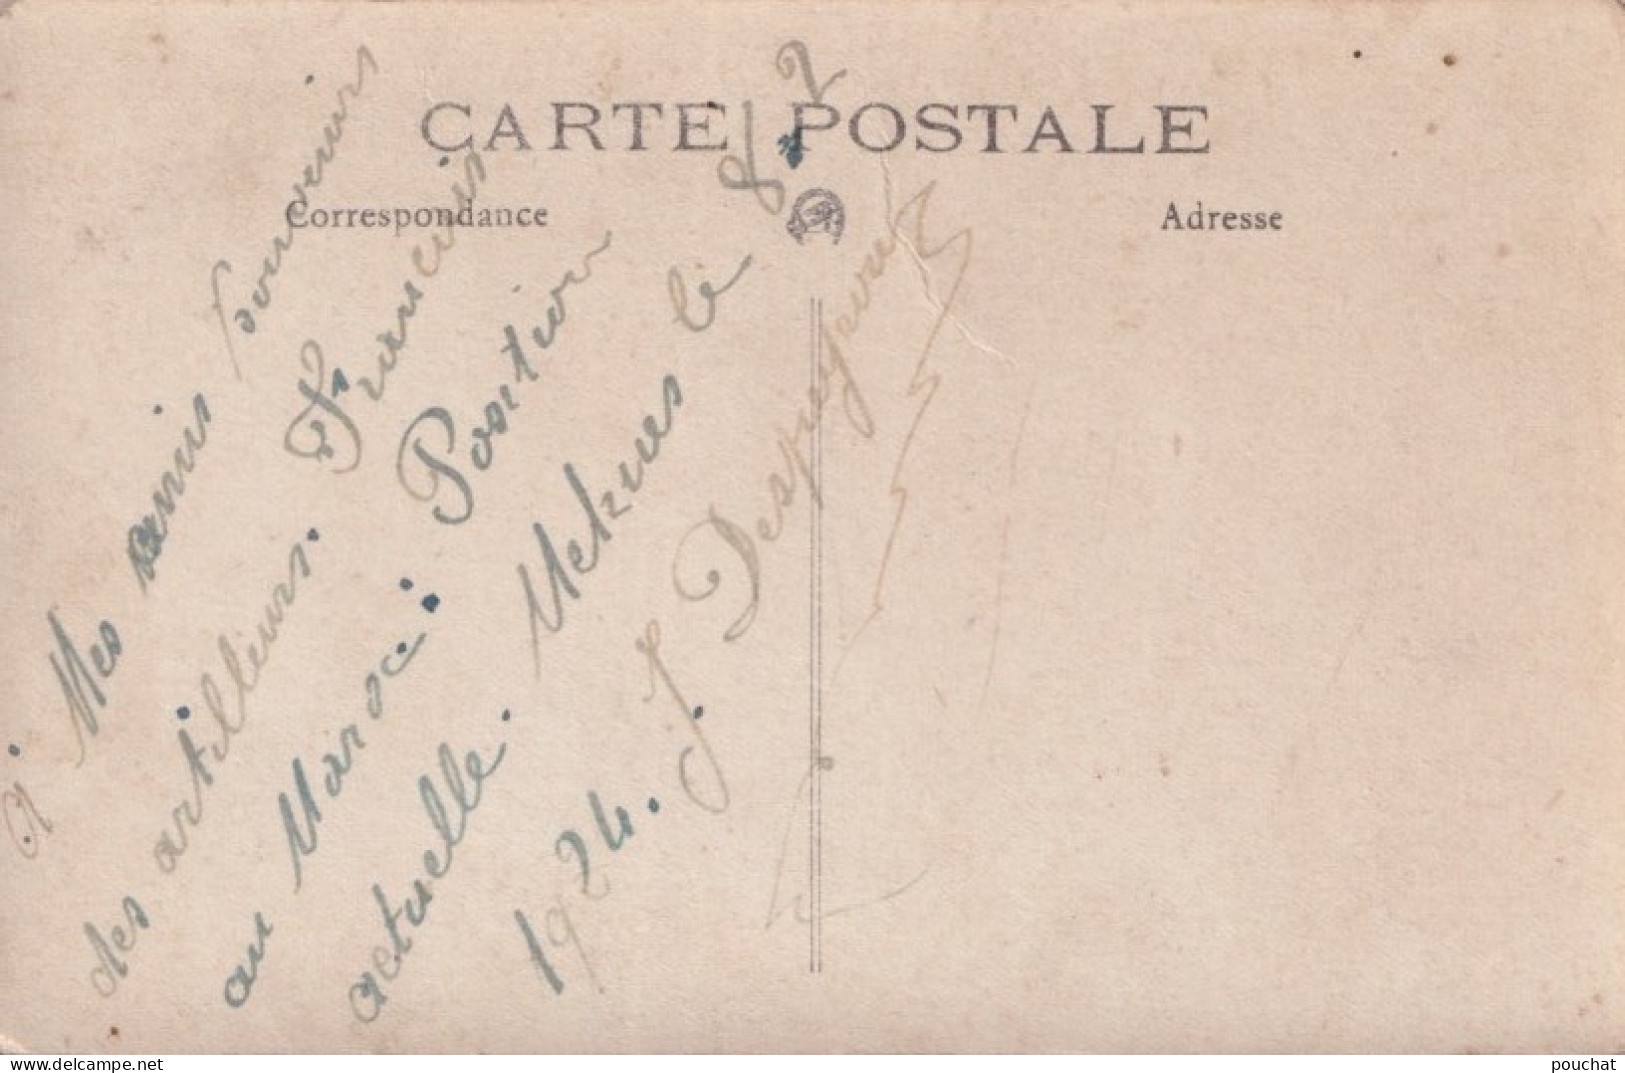 CARTE POSTALE
Correspondance
Adresse
à Mes amis Souvenirs
des artilleurs. Francais
au Maroc: Position
actuelle. Meknes le 8/2
1924.
J. Despujours
Delcampe.net
pouchat